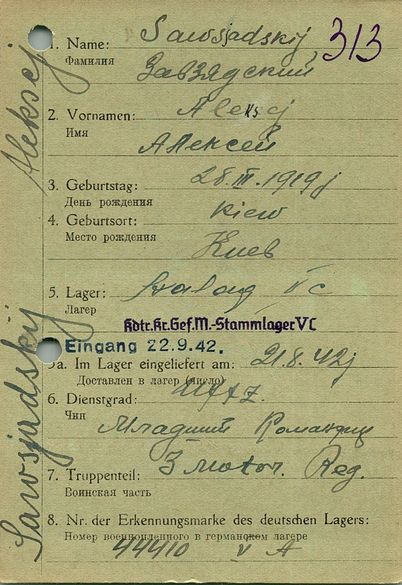 1. Name: Sawsjadskij 313
Фамилия Завзядский
2. Vornamen: Aleksej
Имя Алексей
3. Geburtstag: 28.III.1919j
День рождения
4. Geburtsort: Kiew
Место рождения Киев
5. Lager: Stalag Vc
Лагер
Kdtr.Kr.Gef.M.-Stammlager VC
Eingang 22.9.42.
5a. Im Lager eingeliefert am: 21.8.42j
Доставлен в лагер (число)
6. Dienstgrad:
Чин Младший Командир
7. Truppenteil: 3 motor. Reg.
Воинская часть
8. Nr. der Erkennungsmarke des deutschen Lagers:
Номер военнопленного в германском лагере
44410 V A
Sawsjadskij Aleksej